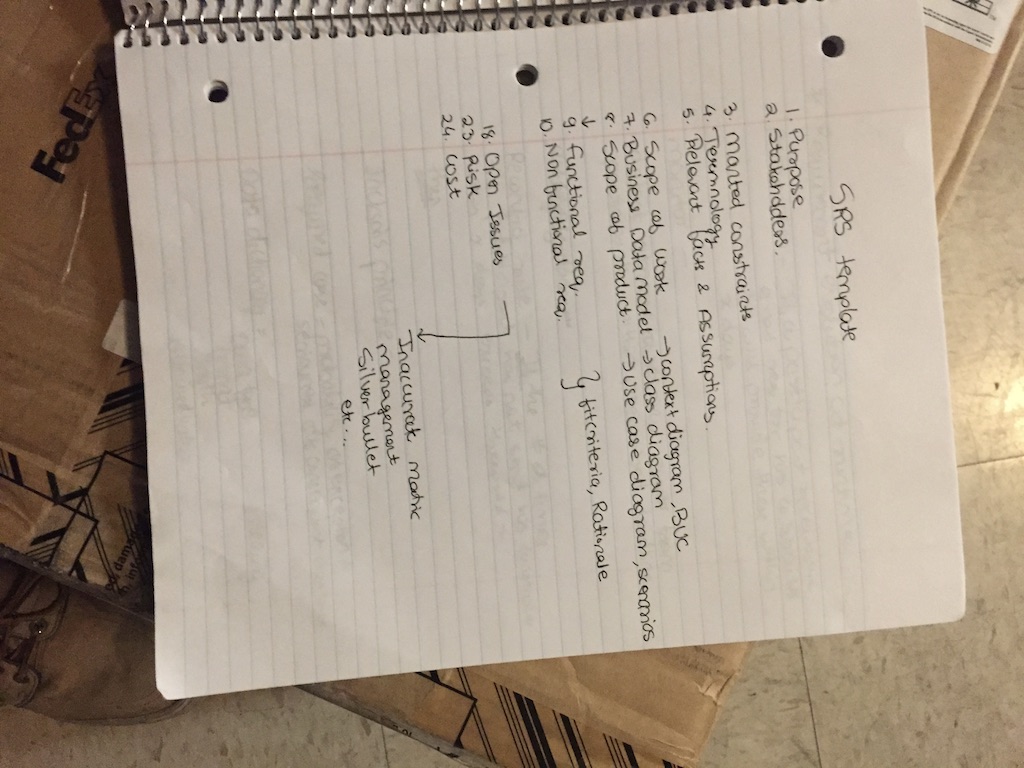 SRS template
1. Purpose
2. Stakeholders.
3. Manted constraints
4. Terminology
5. Relevant facts & Assumptions.
6. Scope of work → context diagram, BUC
7. Business Data model → class diagram
8. Scope of product. → use case diagram, scenarios
↓
9. functional req. } fitcriteria, Rationale
10. Non functional req.
18. Open Issues
23. Risk
24. Cost
Inaccurate metric
management
Silver bullet
etc...
FedEx